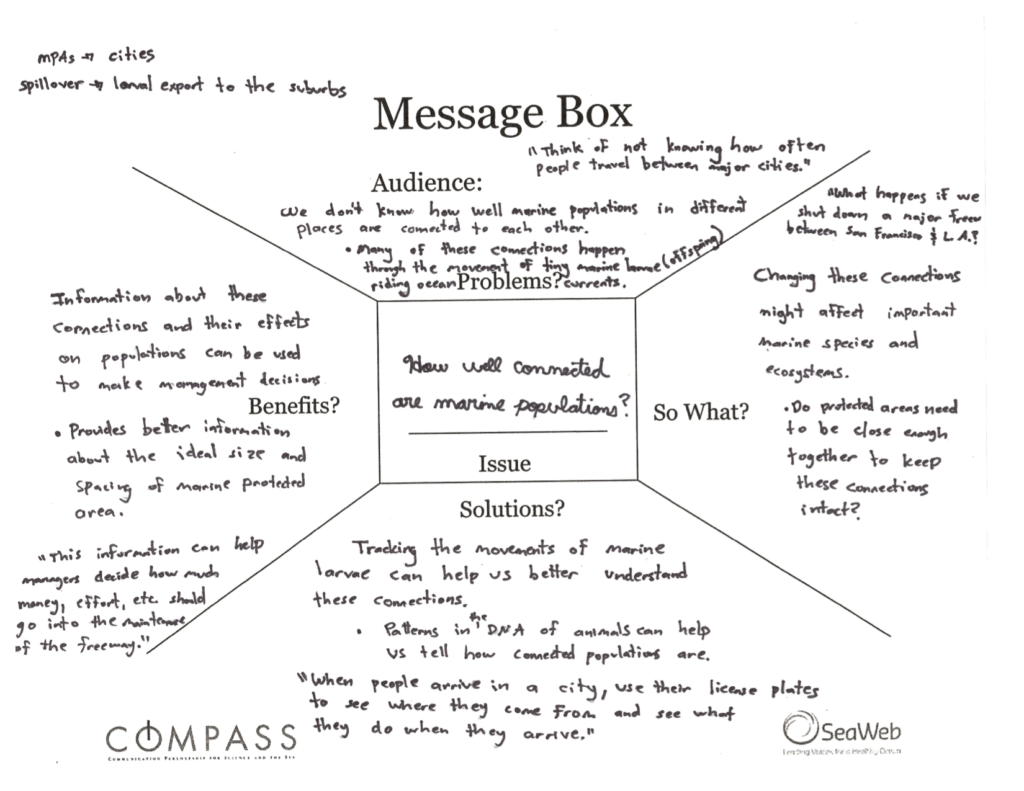 MPAs → cities
spillover → larval export to the suburbs
Message Box
"Think of not knowing how often
people travel between major cities."
Audience:
We don't know how well marine populations in different
places are connected to each other.
• Many of these connections happen
through the movement of tiny marine larvae (offspring)
riding ocean currents.
Problems?
"What happens if we
shut down a major freeway
between San Francisco & L.A.?
Changing these connections
might affect important
marine species and
ecosystems.
So What?
• Do protected areas need
to be close enough
together to keep
these connections
intact?
Information about these
connections and their effects
on populations can be used
to make management decisions
Benefits?
• Provides better information
about the ideal size and
spacing of marine protected
area.
"This information can help
managers decide how much
money, effort, etc. should
go into the maintenance
of the freeway."
How well connected
are marine populations?
Issue
Solutions?
Tracking the movements of marine
larvae can help us better understand
these connections.
• Patterns in the DNA of animals can help
us tell how connected populations are.
"When people arrive in a city, use their license plates
to see where they come from and see what
they do when they arrive."
COMPASS
COMMUNICATION PARTNERSHIP FOR SCIENCE AND THE SEA
SeaWeb
Leading Voices for a Healthy Ocean